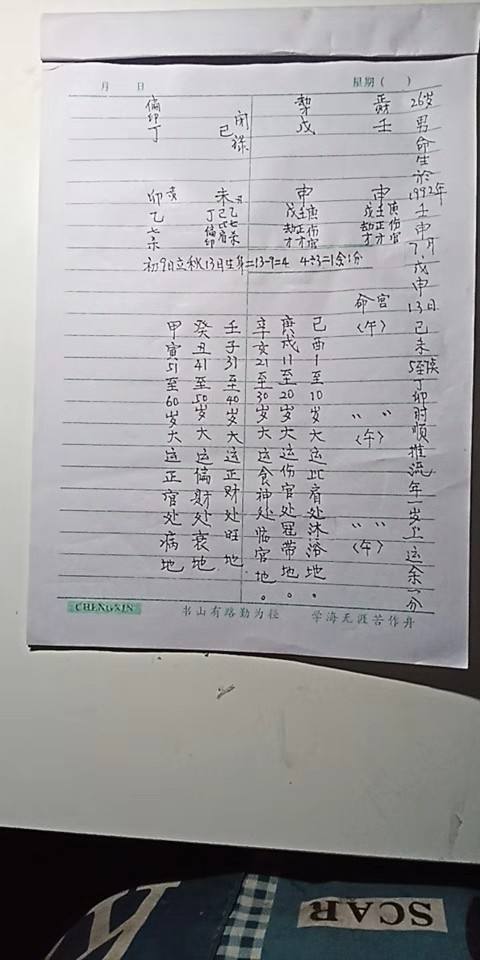 月 日 星期( )
26岁男命生於1992年壬申7月戊申13日己未5至7点丁卯时顺推流年一岁上运余一分
正财 壬
劫 戊
己
偏印 丁
申 申 未 卯
戊壬庚
劫正伤
才才官
戊壬庚
劫正伤
才才官
丁己乙
偏比七
印肩杀
乙
七杀
初9日立秋13日生年=13-9=4 4÷3=1余1分
命宫
(午)
" "
(午)
" "
(午)
己酉1至10岁大运比肩处沐浴地。
庚戌11至20岁大运伤官处冠带地。
辛亥21至30岁大运食神处临官地。
壬子31至40岁大运正财处旺地
癸丑41至50岁大运偏财处衰地
甲寅51至60岁大运正官处病地
CHENGXIN 书山有路勤为径 学海无涯苦作舟
SCAR